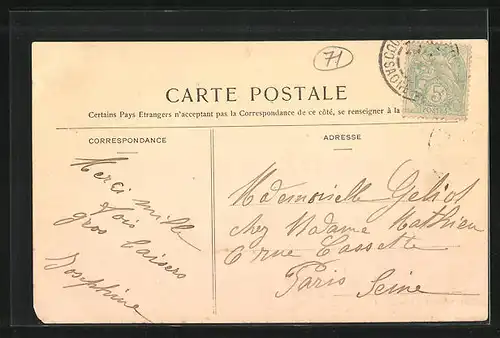 71
CARTE POSTALE
Certains Pays Etrangers n'acceptant pas la Correspondance de ce côté, se renseigner à la
CORRESPONDANCE
ADRESSE
Merci mille
fois
gros baisers
Josephine
Mademoiselle Geliot
chez Madame Mathieu
6 rue Cassette
Paris Seine
5c
POSTES